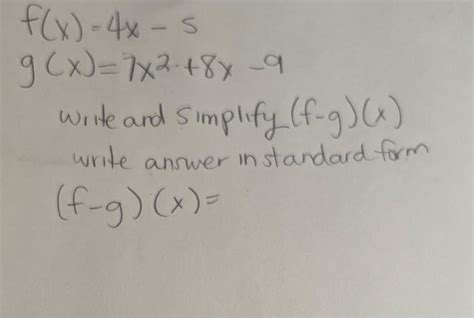 f(x) = 4x - 5
g(x) = 7x2 + 8x - 9
write and simplify (f-g)(x)
write answer in standard form
(f-g)(x)=